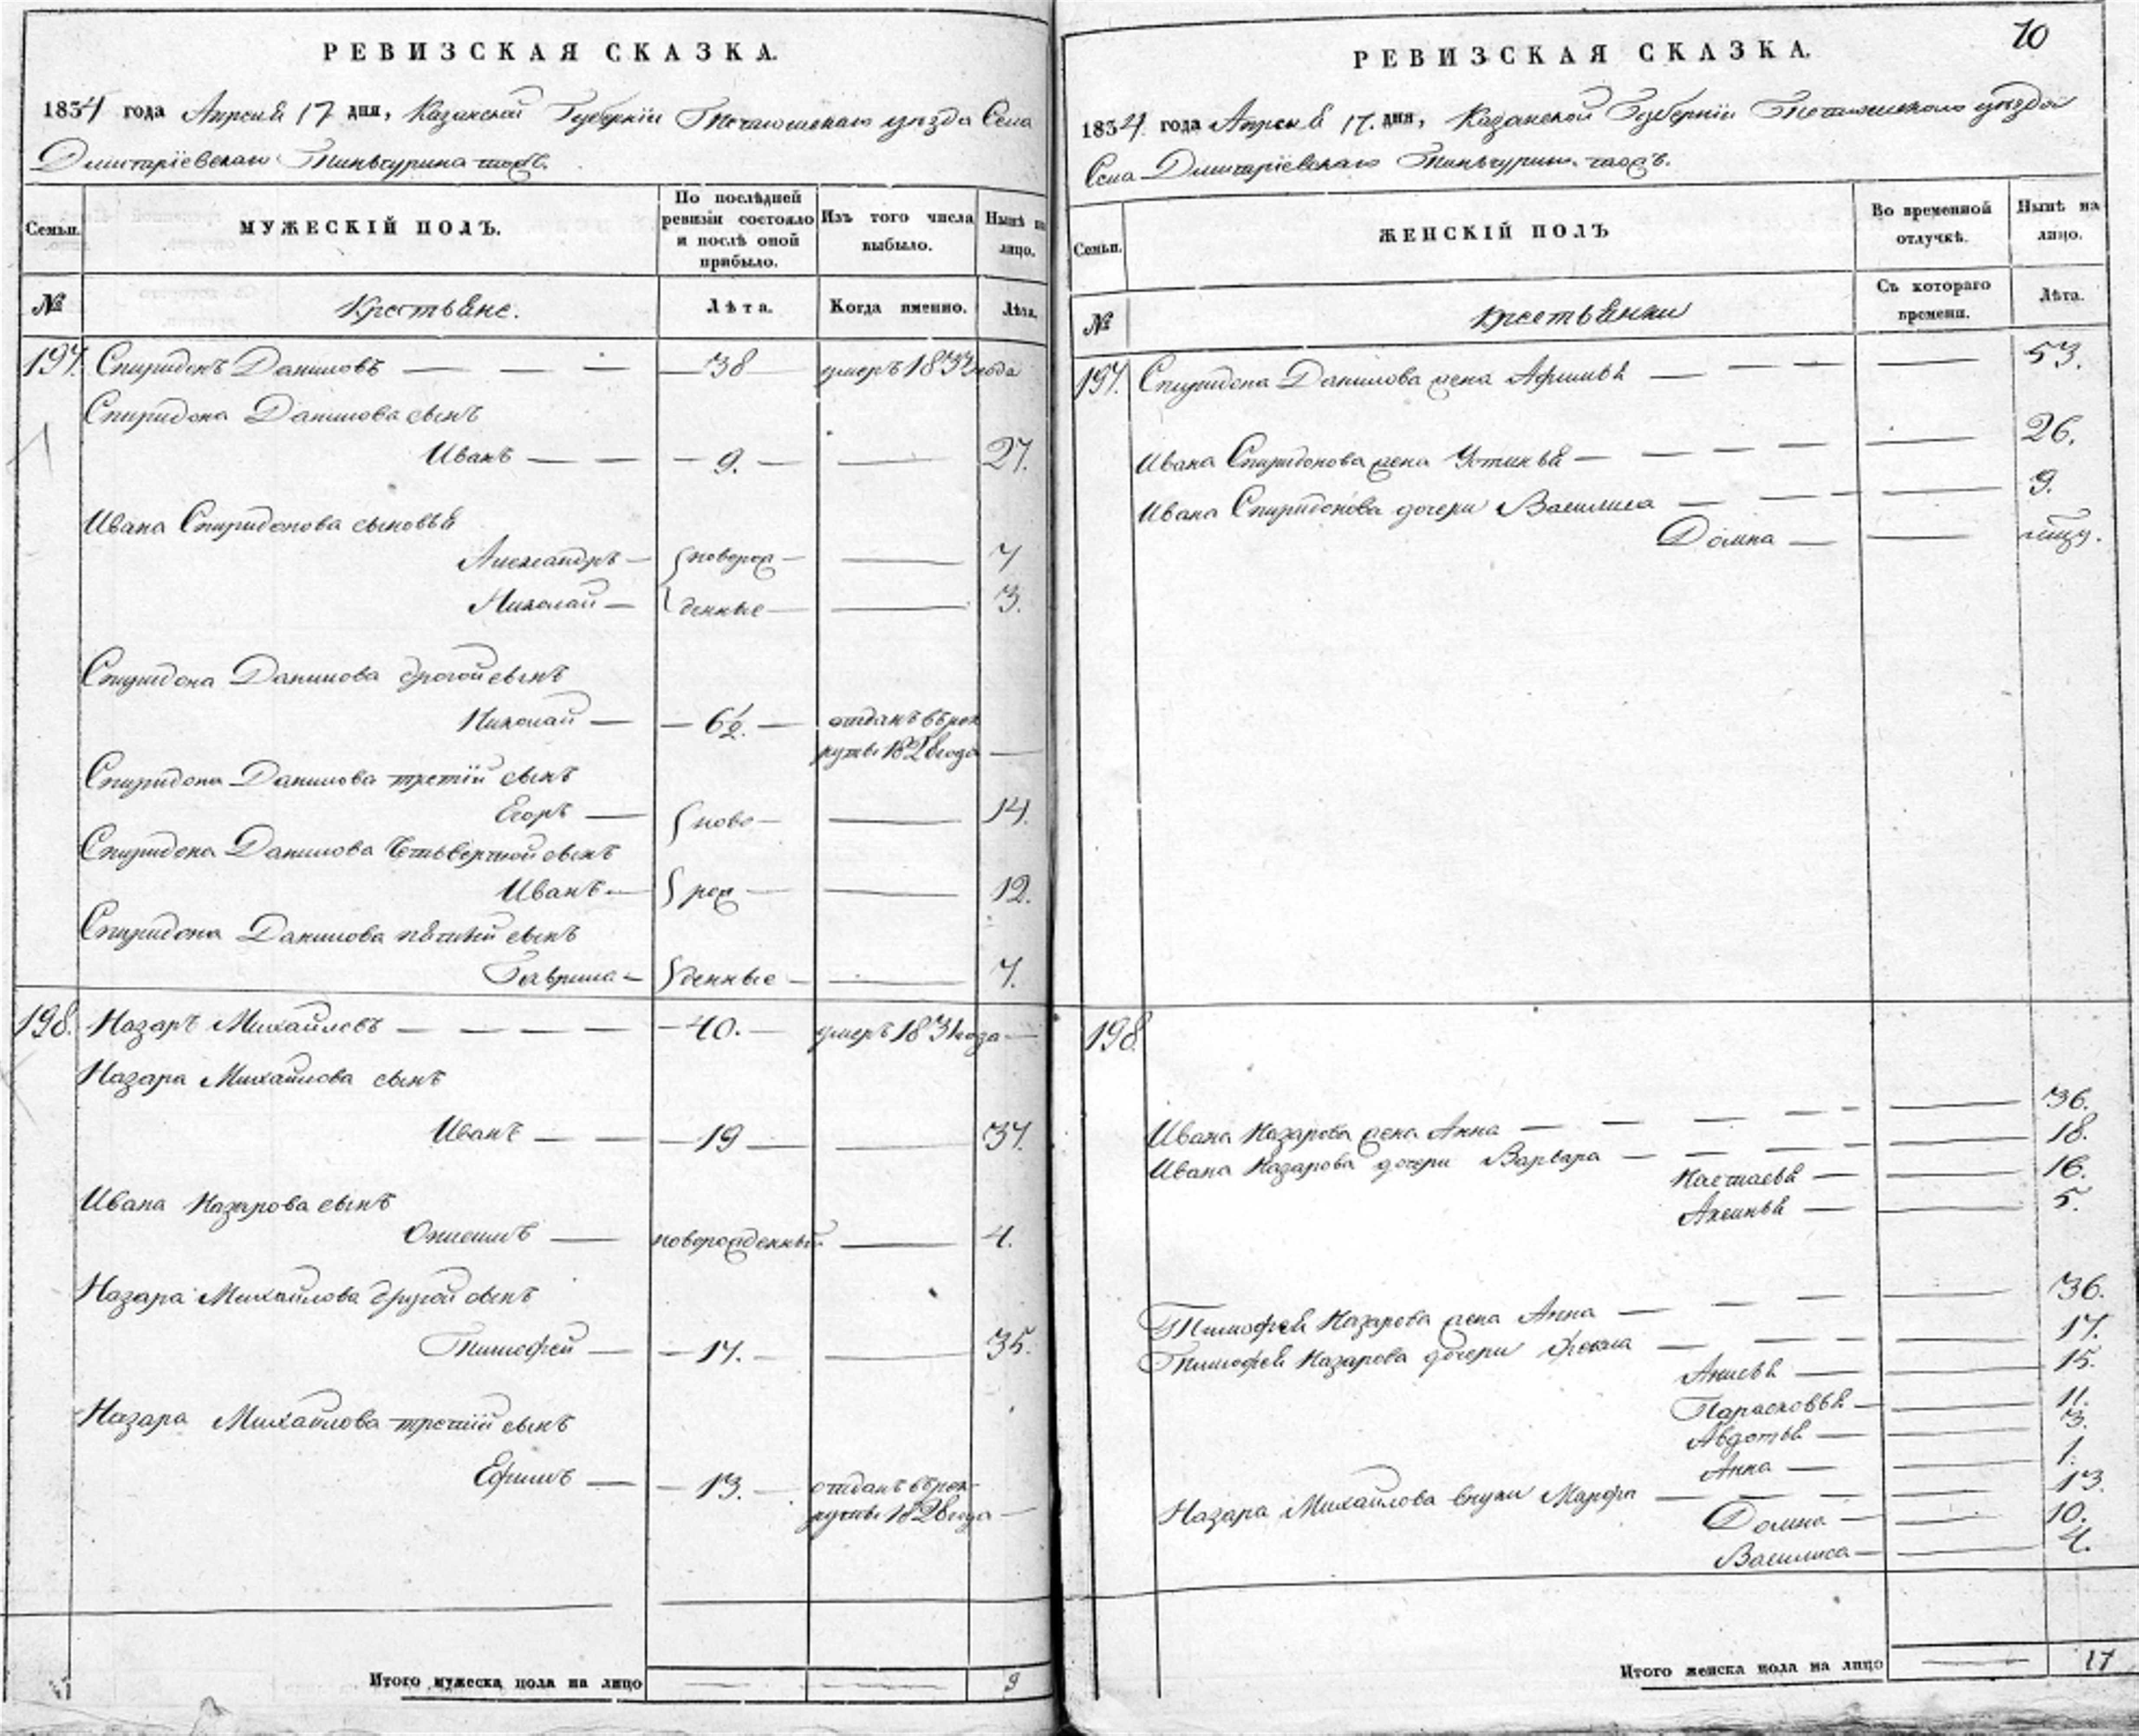 РЕВИЗСКАЯ СКАЗКА.
1834 года Апреля 17 дня, Казанской Губернiи Тетюшскаго уезда Села
Димитрiевскаго Тиньчурина тожъ.
Семьи.
МУЖЕСКIЙ ПОЛЪ.
По послѣдней
ревизiи состояло
и послѣ оной
прибыло.
Изъ того числа
выбыло.
Нынѣ на
лицо.
№
Крестьяне.
Лѣта.
Когда именно.
Лѣта.
197. Спиридонъ Даниловъ — 38 умеръ 1832 года
Спиридона Данилова сынъ
Иванъ — 9. — 27.
Ивана Спиридонова сыновья
Александръ — новорож — 7
Николай — денные — 3.
Спиридона Данилова другой сынъ
Николай — 6½. — отданъ въ рек
руты 1828 года —
Спиридона Данилова третiй сынъ
Егоръ — ново — 14.
Спиридона Данилова Четвертой сынъ
Иванъ — рож — 12.
Спиридона Данилова пятый сынъ
Гаврила — денные — 7.
198. Назаръ Михайловъ — 40. — умеръ 1831 года —
Назара Михайлова сынъ
Иванъ — 19 — 37.
Ивана Назарова сынъ
Онисимъ — новорожденный — 4.
Назара Михайлова другой сынъ
Тимофей — 17. — 35.
Назара Михайлова третiй сынъ
Ефимъ — 13. — отданъ въ рек-
руты 1828 года —
Итого мужеска пола на лицо — — 9
10
РЕВИЗСКАЯ СКАЗКА.
1834 года Апреля 17. дня, Казанской Губернiи Тетюшскаго уезда
Села Димитрiевскаго Тиньчурина тожъ.
Семьи.
ЖЕНСКIЙ ПОЛЪ
Во временной
отлучкѣ.
Нынѣ на
лицо.
№
Крестьянки
Съ котораго
времени.
Лѣта.
197. Спиридона Данилова жена Афимья — 53.
Ивана Спиридонова жена Устинья — 26.
Ивана Спиридонова дочери Василиса — 9.
Домна —
198.
Ивана Назарова жена Анна — 36.
Ивана Назарова дочери Варвара — 18.
Настасья — 16.
Аксинья — 5.
Тимофея Назарова жена Анна — 36.
Тимофея Назарова дочери Фекла — 17.
15.
Парасковья — 11.
Авдотья — 3.
Анна — 1.
Назара Михайлова внуки Марфа — 13.
Домна — 10.
Василиса — 4.
Итого женска пола на лицо — 17